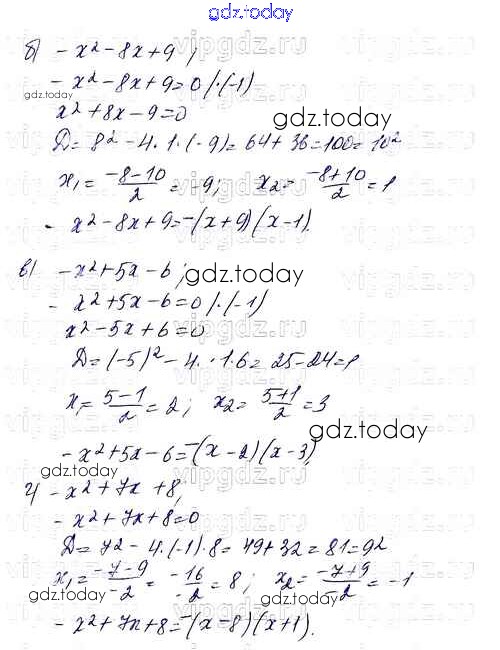 gdz.today
б) -x² - 8x + 9;
-x² - 8x + 9 = 0 /·(-1)
gdz.today
x² + 8x - 9 = 0
gdz.today
D = 8² - 4·1·(-9) = 64 + 36 = 100 = 10²
x₁ = (-8-10)/2 = -9; x₂ = (-8+10)/2 = 1
-x² - 8x + 9 = -(x+9)(x-1).
в) -x² + 5x - 6;
gdz.today
-x² + 5x - 6 = 0 /·(-1)
x² - 5x + 6 = 0
D = (-5)² - 4·1·6 = 25 - 24 = 1
x₁ = (5-1)/2 = 2; x₂ = (5+1)/2 = 3
gdz.today
-x² + 5x - 6 = -(x-2)(x-3)
gdz.today
г) -x² + 7x + 8;
-x² + 7x + 8 = 0
D = 7² - 4·(-1)·8 = 49 + 32 = 81 = 9²
x₁ = (-7-9)/-2 = -16/-2 = 8; x₂ = (-7+9)/-2 = -1
gdz.today
gdz.today
-x² + 7x + 8 = -(x-8)(x+1).